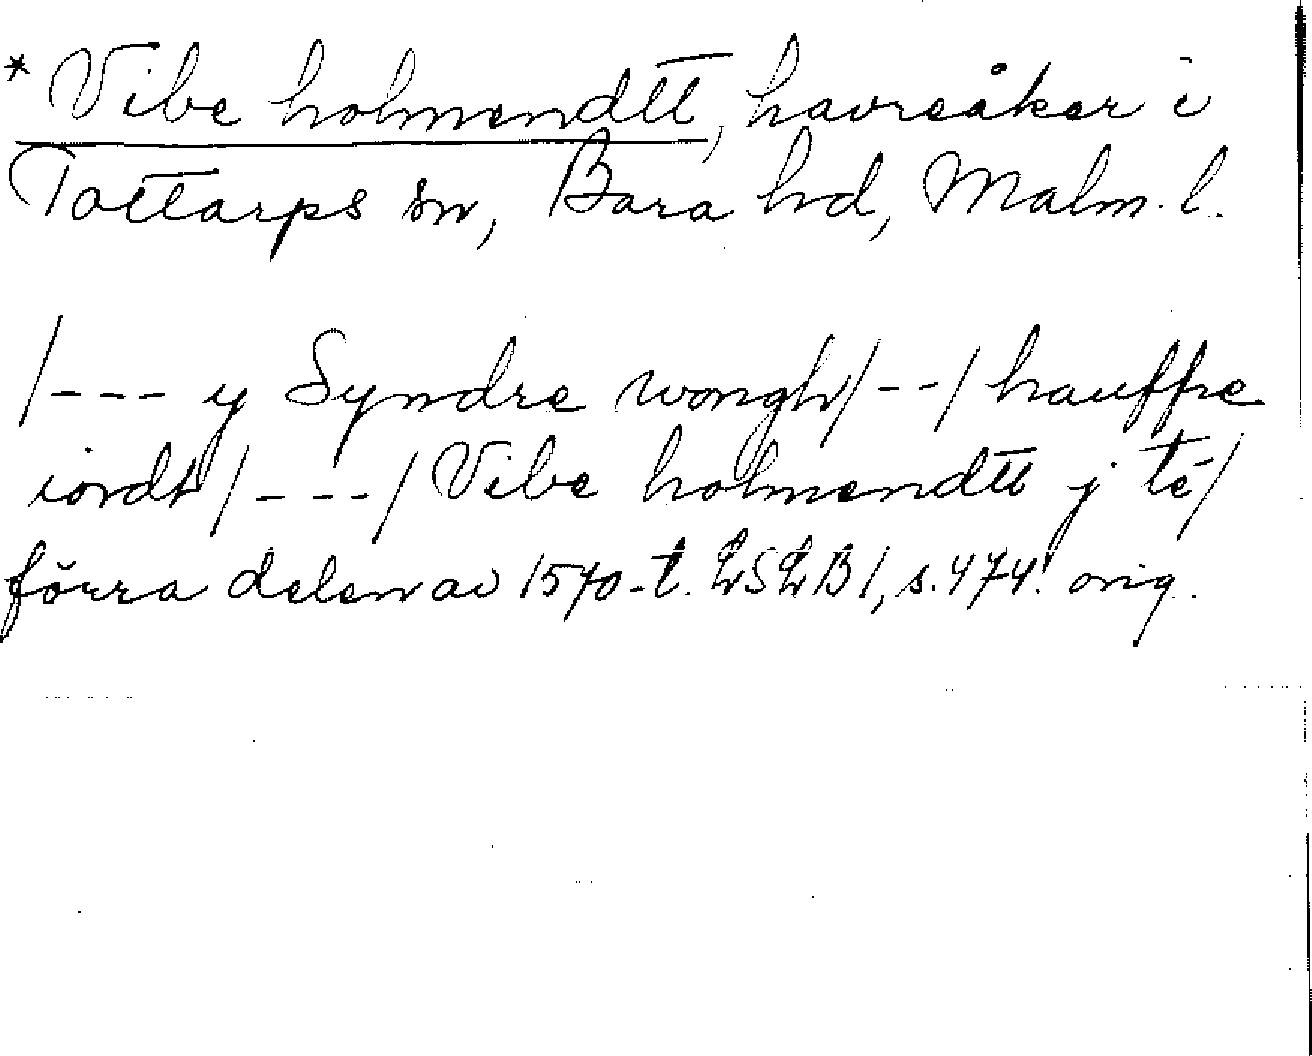 * Vibe holmendtt, havreåker i
Tottarps sn, Bara hd, Malm. l.
/--- y Syndre wongh/--/ hauffre
iordt/---/ Vibe holmendtt j té/
förra delen av 1570-t. LSLB 1, s. 474. orig.